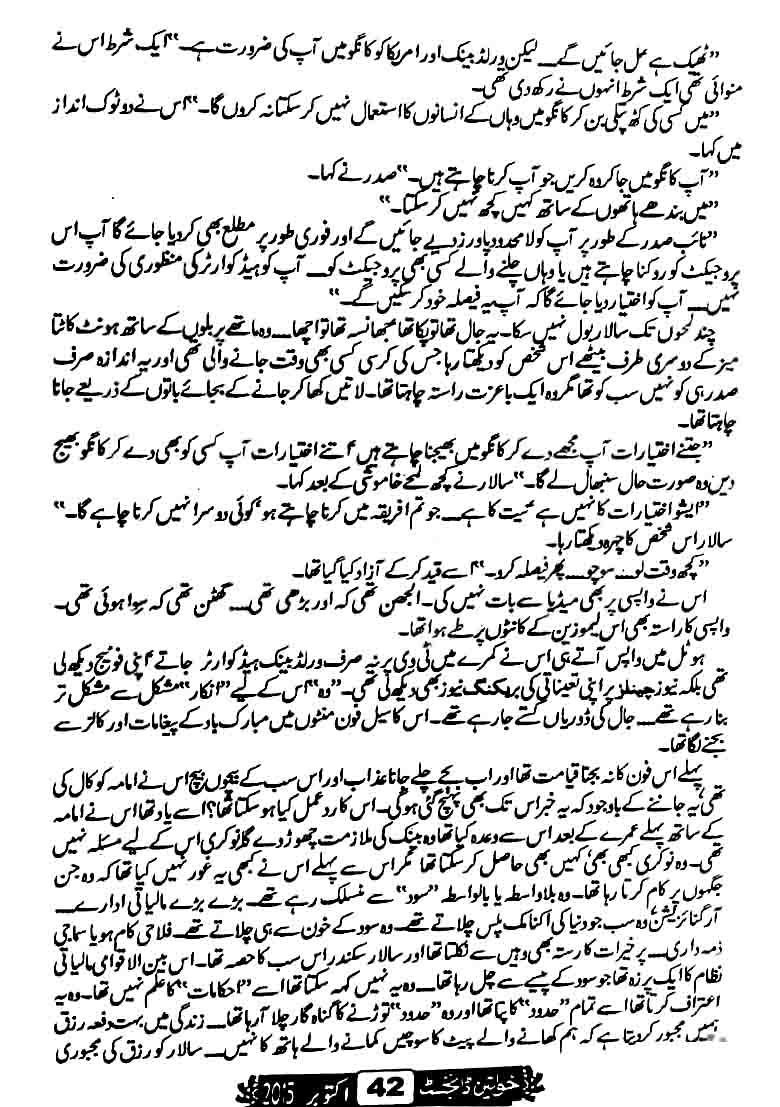 ”ٹھیک ہے عمل جائیں گے۔ لیکن ورلڈ بینک اور امریکا کو کانگو میں آپ کی ضرورت ہے۔“ ایک شرط اس نے
منوائی تھی ایک شرط انہوں نے رکھ دی تھی۔
”میں کسی کی کٹھ پتلی بن کر کانگو میں وہاں کے انسانوں کا استعمال نہیں کر سکتا نہ کروں گا۔“ اس نے دو ٹوک انداز
میں کہا۔
”آپ کانگو میں جا کر وہ کریں جو آپ کرنا چاہتے ہیں۔“ صدر نے کہا۔
”میں بندھے ہاتھوں کے ساتھ کہیں کچھ نہیں کر سکتا۔“
”نائب صدر کے طور پر آپ کو لا محدود پاورز دیے جائیں گے اور فوری طور پر مطلع بھی کر دیا جائے گا آپ اس
پروجیکٹ کو روکنا چاہتے ہیں یا وہاں چلنے والے کسی بھی پروجیکٹ کو۔ آپ کو ہیڈ کوارٹر کی منظوری کی ضرورت
نہیں۔ آپ کو اختیار دیا جائے گا کہ آپ یہ فیصلہ خود کر سکیں گے۔“
چند لمحوں تک سالار بول نہیں سکا۔ یہ جال تھا تو پکا تھا جھانسہ تھا تو اچھا۔ وہ ماتھے پر بلوں کے ساتھ ہونٹ کاٹتا
میز کے دوسری طرف بیٹھے اس شخص کو دیکھتا رہا جس کی کرسی کسی بھی وقت جانے والی تھی اور یہ اندازہ صرف
صدر ہی کو نہیں سب کو تھا مگر وہ ایک باعزت راستہ چاہتا تھا۔ لاتیں کھا کر جانے کے بجائے باتوں کے ذریعے جانا
چاہتا تھا۔
”جتنے اختیارات آپ مجھے دے کر کانگو میں بھیجنا چاہتے ہیں، اتنے اختیارات آپ کسی کو بھی دے کر کانگو بھیج
دیں وہ صورت حال سنبھال لے گا۔“ سالار نے کچھ لمحے خاموشی کے بعد کہا۔
”ایشو اختیارات کا نہیں ہے نیت کا ہے۔ جو تم افریقہ میں کرنا چاہتے ہو، کوئی دوسرا نہیں کرنا چاہے گا۔“
سالار اس شخص کا چہرہ دیکھتا رہا۔
”کچھ وقت لو۔ سوچو۔ پھر فیصلہ کرو۔“ اسے قید کر کے آزاد کیا گیا تھا۔
اس نے واپسی پر بھی میڈیا سے بات نہیں کی۔ الجھن تھی کہ اور بڑھی تھی۔ گھٹن تھی کہ سوا ہوئی تھی۔
واپسی کا راستہ بھی اس لیموزین کے کانٹوں پر طے ہوا تھا۔
ہوٹل میں واپس آتے ہی اس نے کمرے میں ٹی وی پر نہ صرف ورلڈ بینک ہیڈ کوارٹر جاتے اپنی فوٹیج دیکھ لی
تھی بلکہ نیوز چینلز پر اپنی تعیناتی کی بریکنگ نیوز بھی دیکھ لی تھی۔ ”وہ“ اس کے لیے ”انکار“ مشکل سے مشکل تر
بنا رہے تھے۔ جال کی ڈوریاں کستے جا رہے تھے۔ اس کا سیل فون منٹوں میں مبارک باد کے پیغامات اور کالز سے
بجنے لگا تھا۔
پہلے اس فون کا نہ بجنا قیامت تھا اور اب بجے چلے جانا عذاب اور اس سب کے بیچوں بیچ اس نے امامہ کو کال کی
تھی، یہ جاننے کے باوجود کہ یہ خبر اس تک بھی پہنچ گئی ہوگی۔ اس کا رد عمل کیا ہو سکتا تھا؟ اسے یاد تھا اس نے امامہ
کے ساتھ پہلے عمرے کے بعد اس سے وعدہ کیا تھا وہ بینک کی ملازمت چھوڑ دے گا، نوکری اس کے لیے مسئلہ نہیں
تھی۔ وہ نوکری کبھی بھی، کہیں بھی حاصل کر سکتا تھا مگر اس سے پہلے اس نے کبھی یہ غور نہیں کیا تھا کہ وہ جن
جگہوں پر کام کرتا رہا تھا۔ وہ بلاواسطہ یا بالواسطہ ”سود“ سے منسلک رہے تھے۔ بڑے بڑے مالیاتی ادارے۔
آرگنائزیشنز، وہ سب جو دنیا کی اکنامک پلس چلاتے تھے۔ وہ سود کے خون سے ہی چلاتے تھے۔ فلاحی کام ہو یا سماجی
ذمہ داری۔ ہر خیرات کا رستہ بھی وہیں سے نکلتا تھا اور سالار سکندر اس سب کا حصہ تھا۔ اس بین الاقوامی مالیاتی
نظام کا ایک پرزہ تھا جو سود کے پیسے سے چل رہا تھا۔ وہ یہ نہیں کہہ سکتا تھا اسے ”احکامات“ کا علم نہیں تھا۔ وہ یہ
اعتراف کرتا تھا اسے تمام ”حدود“ کا پتا تھا اور وہ ”حدود“ توڑنے کا گناہ گار چلا آ رہا تھا۔ زندگی میں بہت دفعہ رزق
ہمیں مجبور کر دیتا ہے کہ ہم کھانے والے پیٹ کا سوچیں کمانے والے ہاتھ کا نہیں۔ سالار کو رزق کی مجبوری
خواتین ڈائجسٹ 42 اکتوبر 2015